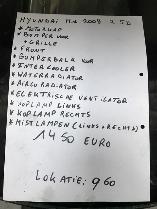 HYUNDAI i10 2008 2 5D
* MOTORKAP
* BUMPER VOOR
+ GRILLE
* FRONT
* BUMPERBALK VOOR
* INTERCOOLER
* WATERRADIATOR
* AIRCO RADIATOR
* ELEKTRISCHE VENTILATOR
* KOPLAMP LINKS
* KOPLAMP RECHTS
* MISTLAMPEN (LINKS + RECHTS)
1450 EURO
LOKATIE: 960